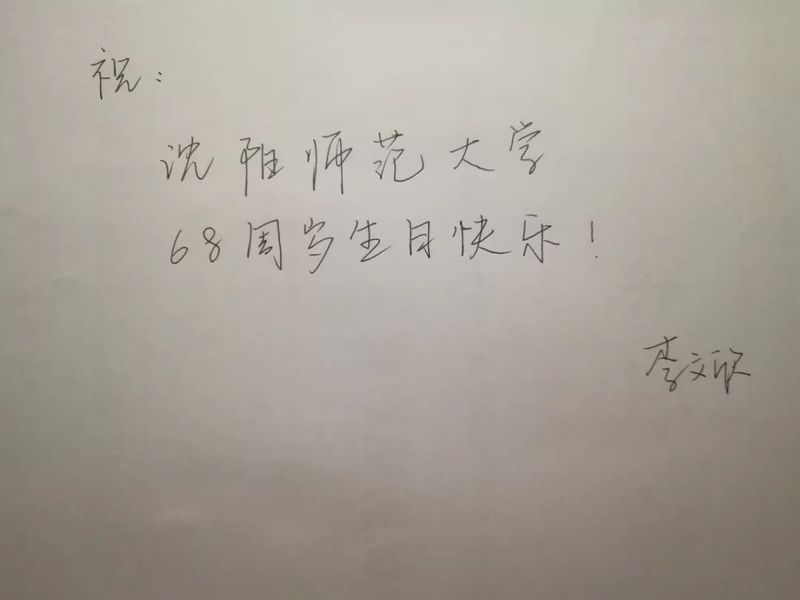 祝：
沈阳师范大学
68周岁生日快乐！
李文欣